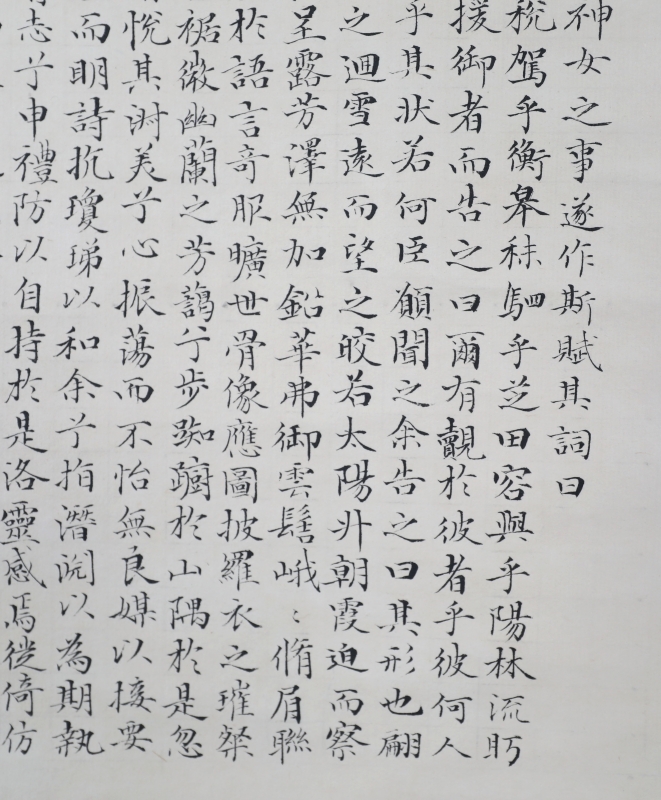 神女之事遂作斯賦其詞曰
税駕乎衡皋秣駟乎芝田容與乎陽林流眄
援御者而告之曰爾有覿於彼者乎彼何人
乎其狀若何臣願聞之余告之曰其形也翩
之迴雪遠而望之皎若太陽升朝霞迫而察
呈露芳澤無加鉛華弗御雲髻峨〻脩眉聯
於語言奇服曠世骨像應圖披羅衣之璀粲
裾微幽蘭之芳藹兮步踟躕於山隅於是忽
悅其淑美兮心振蕩而不怡無良媒以接要
而明詩抗瓊珶以和余兮指潛淵以為期執
志兮申禮防以自持於是洛靈感焉徙倚仿